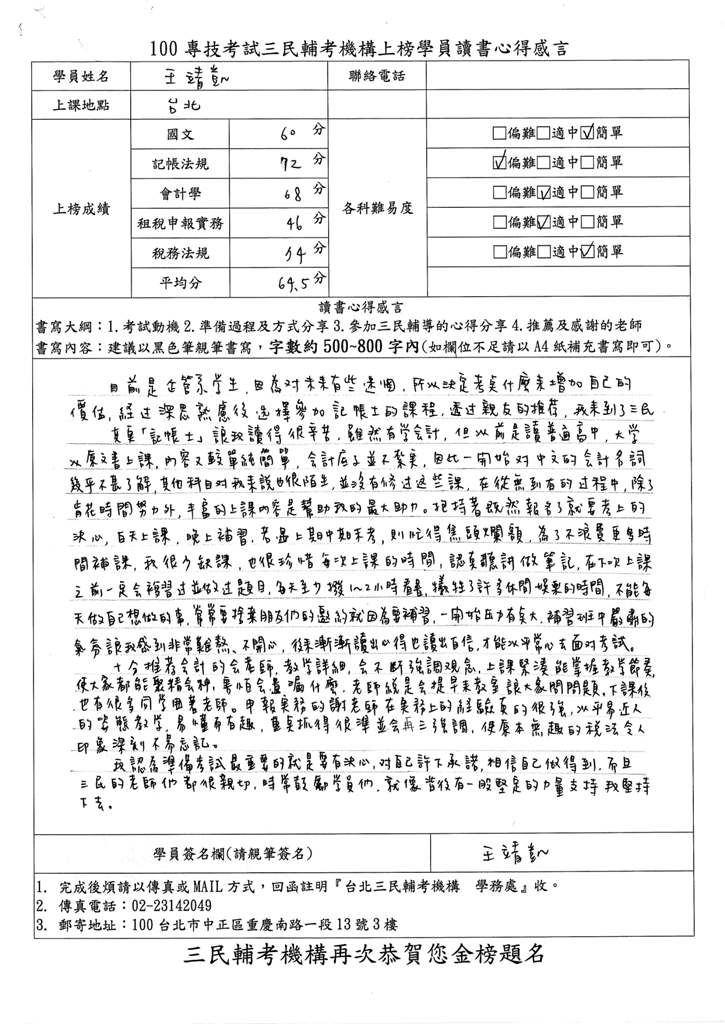 100 專技考試三民輔考機構上榜學員讀書心得感言
學員姓名 王靖 聯絡電話
上課地點 台北
上榜成績 各科難易度
國文 60 分 □偏難□適中☑簡單
記帳法規 72 分 ☑偏難□適中□簡單
會計學 68 分 □偏難☑適中□簡單
租稅申報實務 46 分 □偏難☑適中□簡單
稅務法規 54 分 □偏難□適中☑簡單
平均分 64.5 分
讀書心得感言
書寫大綱：1.考試動機 2.準備過程及方式分享 3.參加三民輔導的心得分享 4.推薦及感謝的老師
書寫內容：建議以黑色筆親筆書寫，字數約 500~800 字內(如欄位不足請以 A4 紙補充書寫即可)。
目前是企管系學生，因為對未來有些迷惘，所以決定考點什麼來增加自己的
價值，經过深思熟慮後選擇參加記帳士的課程，透过親友的推荐，我来到了三民
其實「記帳士」讓我讀得很辛苦，雖然有學会計，但以前是讀普通高中，大学
以原文書上課，內容又較單純簡單，会計底子並不紮實，因此一開始对中文的会計名詞
幾乎不甚了解，其他科目对我来說也很陌生，並沒有修过這些課，在從無到有的过程中，除了
肯花時間努力外，丰富的上課內容是幫助我的最大助力。抱持著既然報名了就要考上的
決心，白天上課，晚上補習，若遇上期中期末考，則忙得焦頭爛額，為了不浪費更多時
間補課，我很少缺課，也很珍惜每次上課的時間，認真聽講做筆記，在下次上課
之前一定会複習过並做过題目，每天至少撥1~2小時看書，犧牲了許多休閒娛樂的時間，不能每
天做自己想做的事，常常要捨棄朋友們的邀約就因為要補習，一開始压力有點大，補習班中嚴肅的
氣氛讓我感到非常難熬、不開心，後來漸漸讀出心得也讀出自信，才能以平常心去面对考試。
十分推荐会計的金老師，教学詳細，会不斷強調观念，上課緊湊能掌握教學節奏，
使大家都能聚精会神，害怕会遺漏什麼，老師總是会提早来教室讓大家問問題，下課後
也有很多同学圍著老師。申報实務的謝老師在实務上的經驗真的很強，以平易近人
的姿態教学，易懂而有趣，重點抓得很準並会再三強調，使原本無趣的稅法令人
印象深刻不易忘記。
我認為準備考試最重要的就是要有決心，对自己許下承諾，相信自己做得到，而且
三民的老師們都很親切，時常鼓勵学員們，就像背後有一股堅定的力量支持我堅持
下去。
學員簽名欄(請親筆簽名) 王靖
1. 完成後煩請以傳真或 MAIL 方式，回函註明『台北三民輔考機構 學務處』收。
2. 傳真電話：02-23142049
3. 郵寄地址：100 台北市中正區重慶南路一段 13 號 3 樓
三民輔考機構再次恭賀您金榜題名